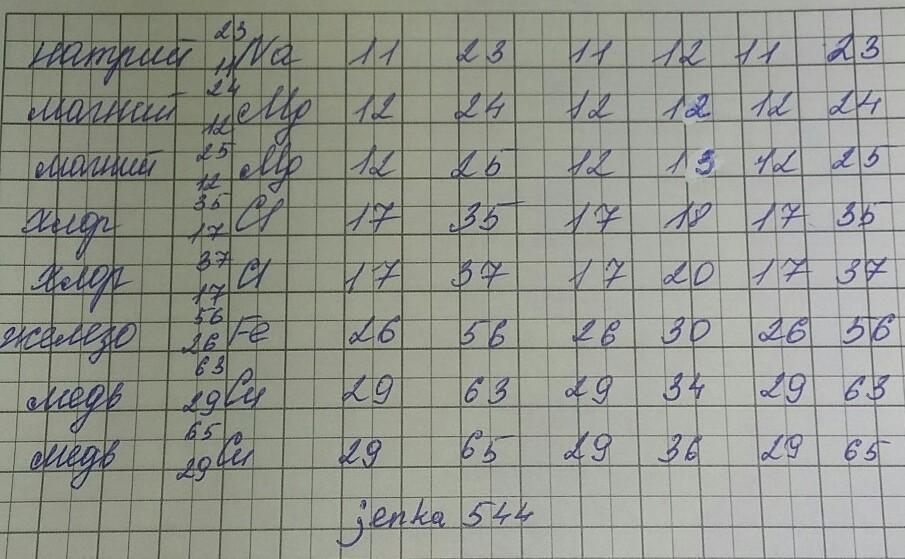 натрий 23 11 Na 11 23 11 12 11 23
магний 24 12 Mg 12 24 12 12 12 24
магний 25 12 Mg 12 25 12 13 12 25
хлор 35 17 Cl 17 35 17 18 17 35
хлор 37 17 Cl 17 37 17 20 17 37
железо 56 26 Fe 26 56 26 30 26 56
медь 63 29 Cu 29 63 29 34 29 63
медь 65 29 Cu 29 65 29 36 29 65
jenka 544